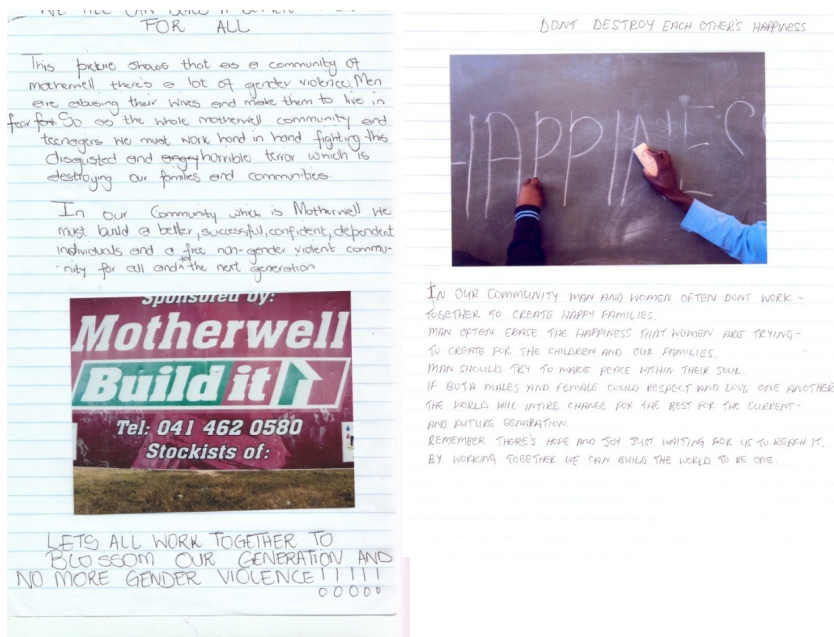 FOR ALL
This picture shows that as a community of
motherwell there's a lot of gender violence. Men
are abusing their wives and make them to live in
fear So as the whole motherwell community and
teenagers we must work hand in hand fighting this
disgusted and horrible terror which is
destroying our families and communities.
In our Community which is Motherwell we
must build a better, successful, confident, dependent
individuals and a free non-gender violent commu-
-nity for all and to the next generation
Sponsored by:
Motherwell
Build it
Tel: 041 462 0580
Stockists of:
LETS ALL WORK TOGETHER TO
BLOSSOM OUR GENERATION AND
NO MORE GENDER VIOLENCE !!!!!
DONT DESTROY EACH OTHER'S HAPPINESS
HAPPINESS
IN OUR COMMUNITY MAN AND WOMEN OFTEN DONT WORK -
TOGETHER TO CREATE HAPPY FAMILIES.
MAN OFTEN ERASE THE HAPPINESS THAT WOMEN ARE TRYING -
TO CREATE FOR THE CHILDREN AND OUR FAMILIES.
MAN SHOULD TRY TO MAKE PEACE WITHIN THEIR SOUL.
IF BOTH MALES AND FEMALE COULD RESPECT AND LOVE ONE ANOTHER
THE WORLD WILL INTIRE CHANGE FOR THE BEST FOR THE CURRENT -
AND FUTURE GENARATION.
REMEMBER THERE'S HOPE AND JOY JUST WAITING FOR US TO REACH IT.
BY WORKING TOGETHER WE CAN BUILD THE WORLD TO BE ONE.